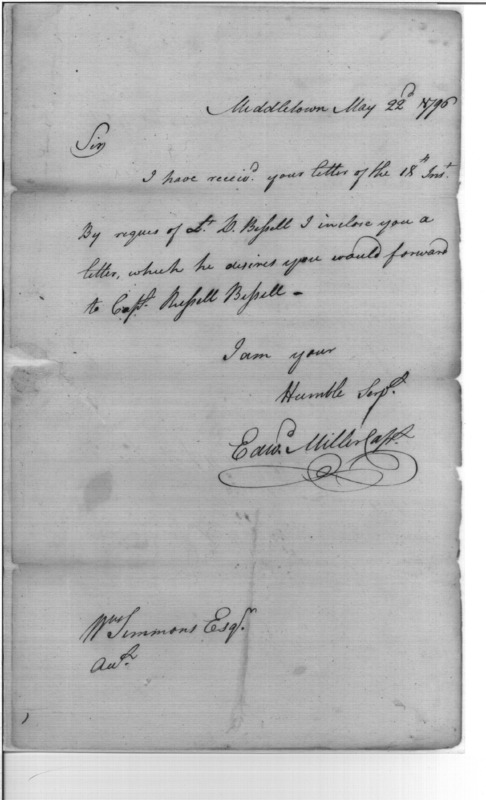 Middletown May 22d 1796
Sir
I have receivd. your letter of the 18th Inst.
By reques of Lt. D. Bissell I inclose you a
letter, which he desires you would forward
to Capt. Russell Bissell -
I am your
Humble Servt.
Edwd. Miller Capt.
Wm Simmons Esqr.